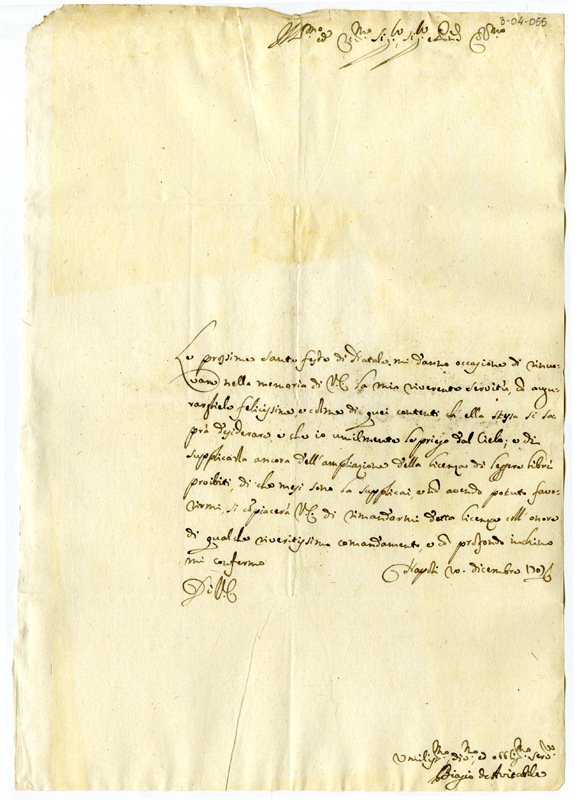 3-04-055
Ill.mo ed Ecc.mo Sig.re Sig.re e Pad.ne Col.mo
Le prossime sante feste di Natale, mi danno occasione di rinno-
vare nella memoria di V.E. la mia riverente servitù, ed augu-
rargliele felicissime e colme di quei contenti ch'ella stessa si sa-
prà desiderare, e che io umilmente le priego dal Cielo; e di
supplicarla ancora dell'ampliazione della licenza di leggere libri
proibiti, di che mesi sono la supplicai, e non avendo potuto favo-
rirmi, si compiacerà V.E. di rimandarmi detta licenza coll'onore
di qualche riveritissimo comandamento, e con profondo inchino
mi confermo
Napoli 20. dicembre
Di V.E.
Umiliss.mo div.mo ed obblig.mo serv.re
Biagio de Avitabile